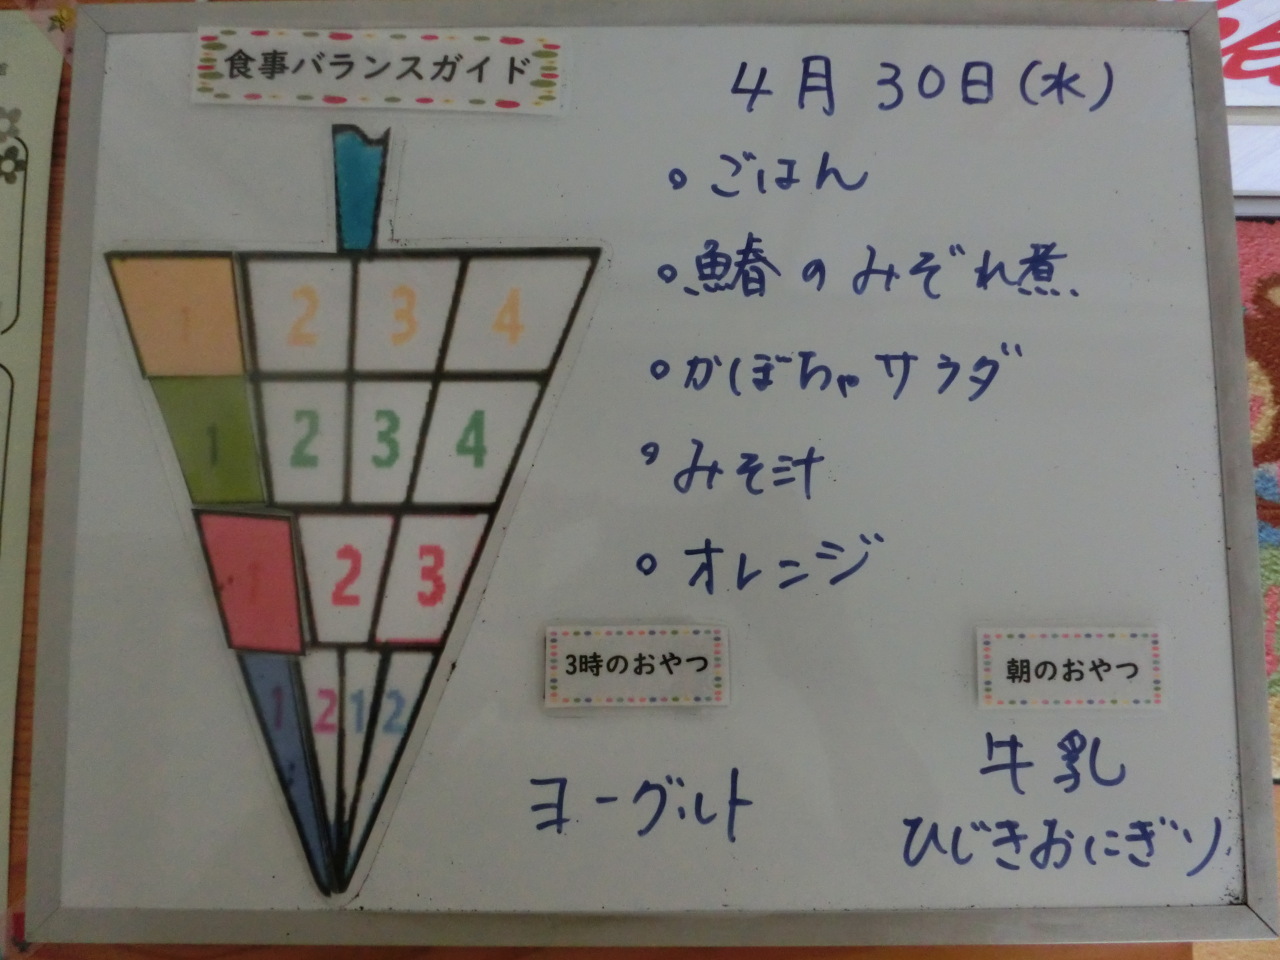 食事バランスガイド
4月30日(水)
。ごはん
。鰆のみぞれ煮
。かぼちゃサラダ
。みそ汁
。オレンジ
1 2 3 4
1 2 3 4
1 2 3
1 2 1 2
3時のおやつ
ヨーグルト
朝のおやつ
牛乳
ひじきおにぎり